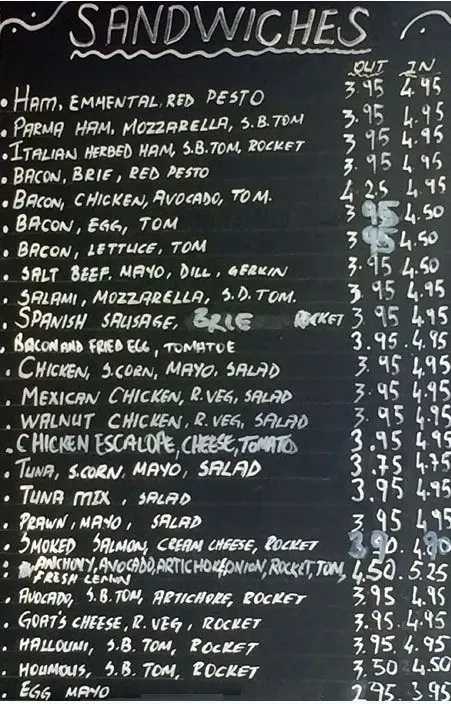 SANDWICHES
OUT IN
. HAM, EMMENTAL, RED PESTO 3.95 4.95
. PARMA HAM, MOZZARELLA, S.B.TOM 3.95 4.95
. ITALIAN HERBED HAM, S.B.TOM, ROCKET 3.95 4.95
. BACON, BRIE, RED PESTO 3.95 4.95
. BACON, CHICKEN, AVOCADO, TOM. 4.25 4.95
. BACON, EGG, TOM 3.95 4.50
. BACON, LETTUCE, TOM 3.95 4.50
. SALT BEEF, MAYO, DILL, GERKIN 3.95 4.50
. SALAMI, MOZZARELLA, S.D.TOM. 3.95 4.95
. SPANISH SAUSAGE, BRIE ROCKET 3.95 4.95
. BACON AND FRIED EGG, TOMATOE 3.95 4.95
. CHICKEN, S.CORN, MAYO, SALAD 3.95 4.95
. MEXICAN CHICKEN, R.VEG, SALAD 3.95 4.95
. WALNUT CHICKEN, R.VEG, SALAD 3.95 4.95
. CHICKEN ESCALOPE, CHEESE, TOMATO 3.95 4.95
. TUNA, S.CORN, MAYO, SALAD 3.75 4.75
. TUNA MIX, SALAD 3.95 4.95
. PRAWN, MAYO, SALAD 3.95 4.95
. SMOKED SALMON, CREAM CHEESE, ROCKET
. ANCHOVY, AVOCADO, ARTICHOKE, ONION, ROCKET, TOM, 4.50 5.25
FRESH LEMON
. AVOCADO, S.B.TOM, ARTICHORE, ROCKET 3.95 4.95
. GOATS CHEESE, R.VEG, ROCKET 3.95 4.95
. HALLOUMI, S.B. TOM, ROCKET 3.95 4.95
. HOUMOUS, S.B. TOM, ROCKET 3.50 4.50
. EGG MAYO 2.95 3.95